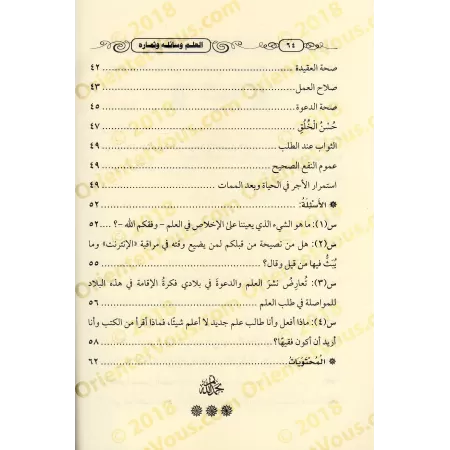 ٦٤ العلم وسائله وثماره
صحة العقيدة ........ ٤٢
صلاح العمل ........ ٤٣
صحة الدعوة ........ ٤٥
حُسْنُ الْخُلُقِ ........ ٤٧
الثواب عند الطلب ........ ٤٩
عموم النفع الصحيح ........ ٤٩
استمرار الأجر في الحياة وبعد الممات ........ ٤٩
الأَسْئِلَةُ: ........ ٥٢
س(١): ما هو الشيء الذي يعيننا على الإخلاص في العلم – وفقكم الله –؟ .... ٥٢
س(٢): هل من نصيحة من قبلكم لمن يضيع وقته في مراقبة «الإنترنت» وما
يُبَثُّ فيها من قيل وقال؟ ........ ٥٥
س(٣): تُعارِضُ نشرَ العلم والدعوة في بلادي فكرةُ الإقامة في هذه البلاد
للمواصلة في طلب العلم ........ ٥٦
س(٤): ماذا أفعل وأنا طالب علم جديد لا أعلم شيئًا، فماذا أقرأ من الكتب وأنا
أريد أن أكون فقيهًا؟ ........ ٥٨
الْمُحْتَوَيَاتُ ........ ٦٢
© 2018
OrientEtVous.com